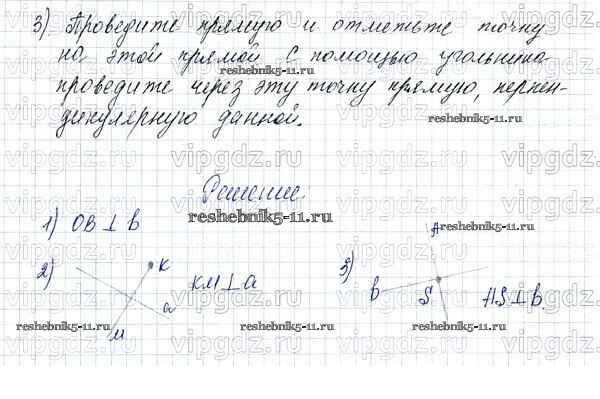 3) Проведите прямую и отметьте точку
на этой прямой. С помощью угольника
проведите через эту точку прямую, перпен-
дикулярную данной.
reshebnik5-11.ru
Решение:
reshebnik5-11.ru
1) OB ⊥ b
A
reshebnik5-11.ru
2)
K
KM ⊥ a
a
M
3)
b
S
AS ⊥ b.
reshebnik5-11.ru
reshebnik5-11.ru
reshebnik5-11.ru
vipgdz.ru vipgdz.ru vipgdz.ru vipgdz.ru